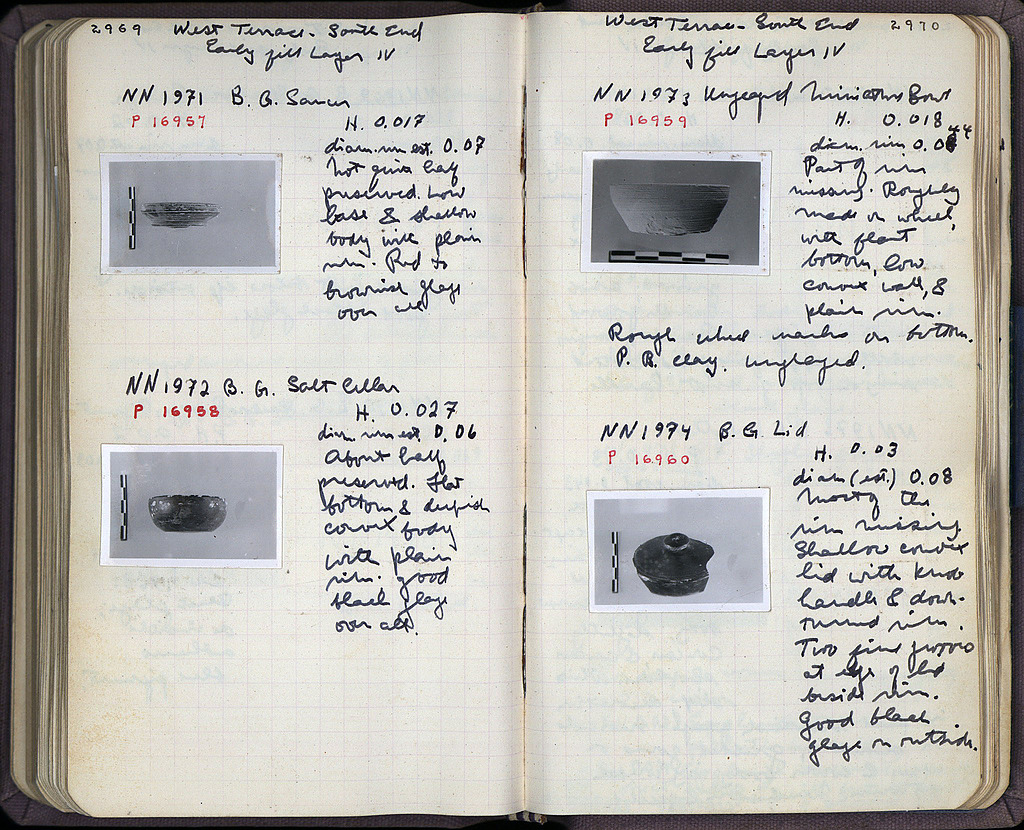 2969 West Terrace - South End
Early fill Layer IV
NN 1971 B. G. Saucer
P 16957
H. 0.017
diam. rim est. 0.07
Not quite half
preserved. Low
base & shallow
body with plain
rim. Red to
brownish glaze
over all
NN 1972 B. G. Salt Cellar
P 16958
H. 0.027
diam. rim est. 0.06
About half
preserved. Flat
bottom & deepish
convex body
with plain
rim. Good
black glaze
over all.
West Terrace - South End 2970
Early fill Layer IV
NN 1973 Unglazed Miniature Bowl
P 16959
H. 0.018
diam. rim 0.044
Part of rim
missing. Roughly
made on wheel,
with flat
bottom, low
convex wall, &
plain rim.
Rough wheel marks on bottom.
P. B. clay, unglazed.
NN 1974 B. G. Lid
P 16960
H. 0.03
diam (est.) 0.08
Most of the
rim missing
Shallow convex
lid with knob
handle & down-
turned rim.
Two fine grooves
at edge of lid
beside rim.
Good black
glaze on outside.